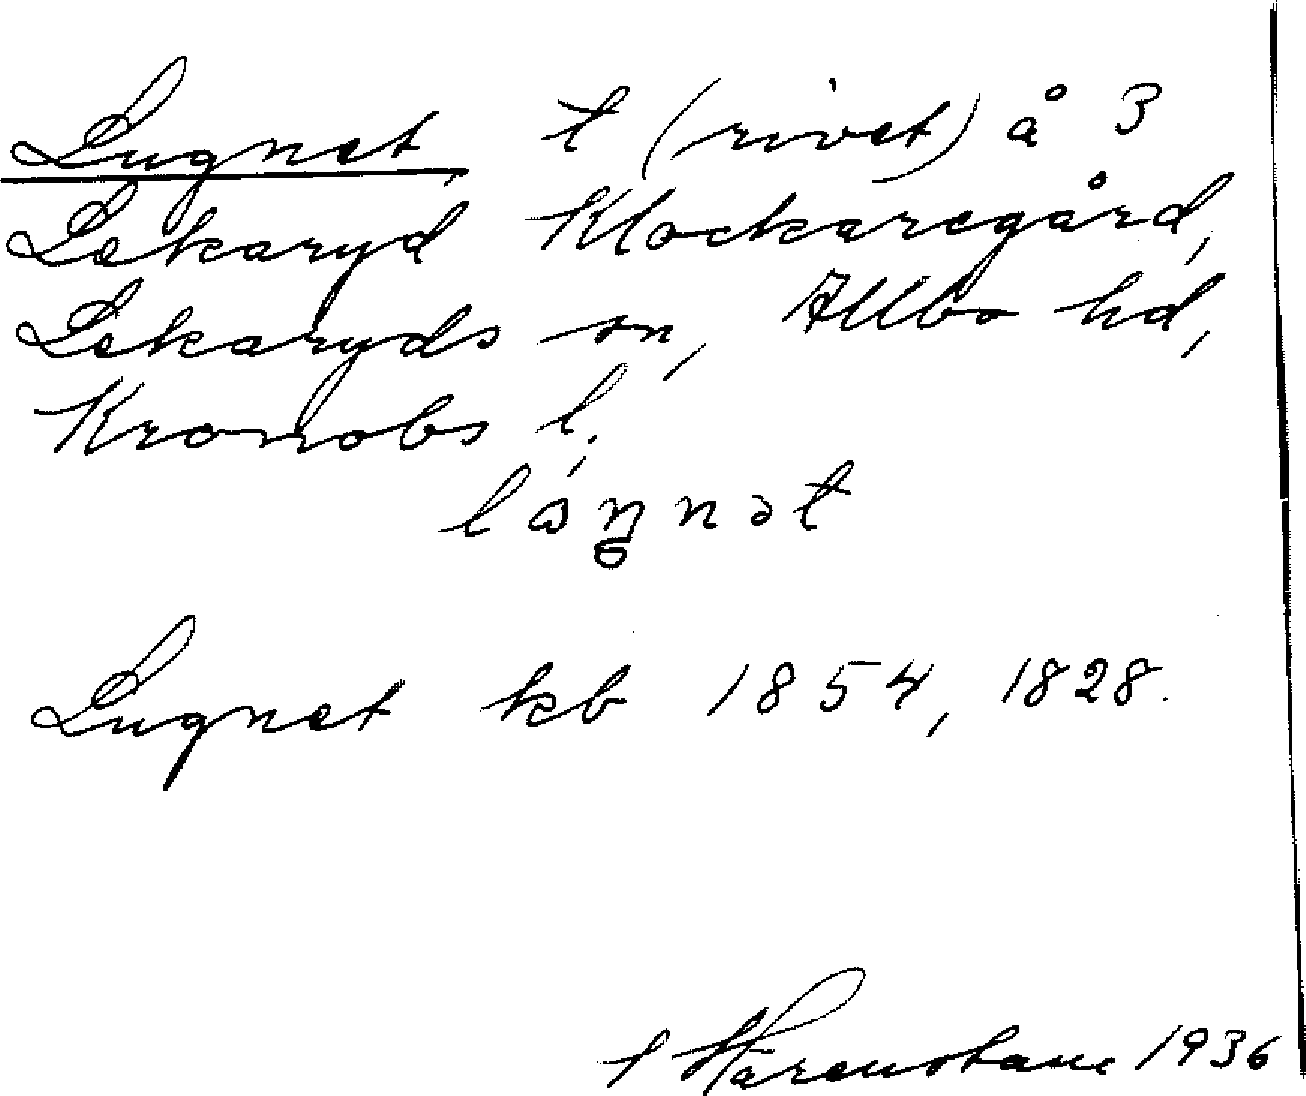 Lugnet, t (rivet) å 3
Lekaryd Klockaregård,
Lekaryds sn, Allbo hd,
Kronobs l.
lóŋnət
Lugnet kb 1854, 1828.
1936